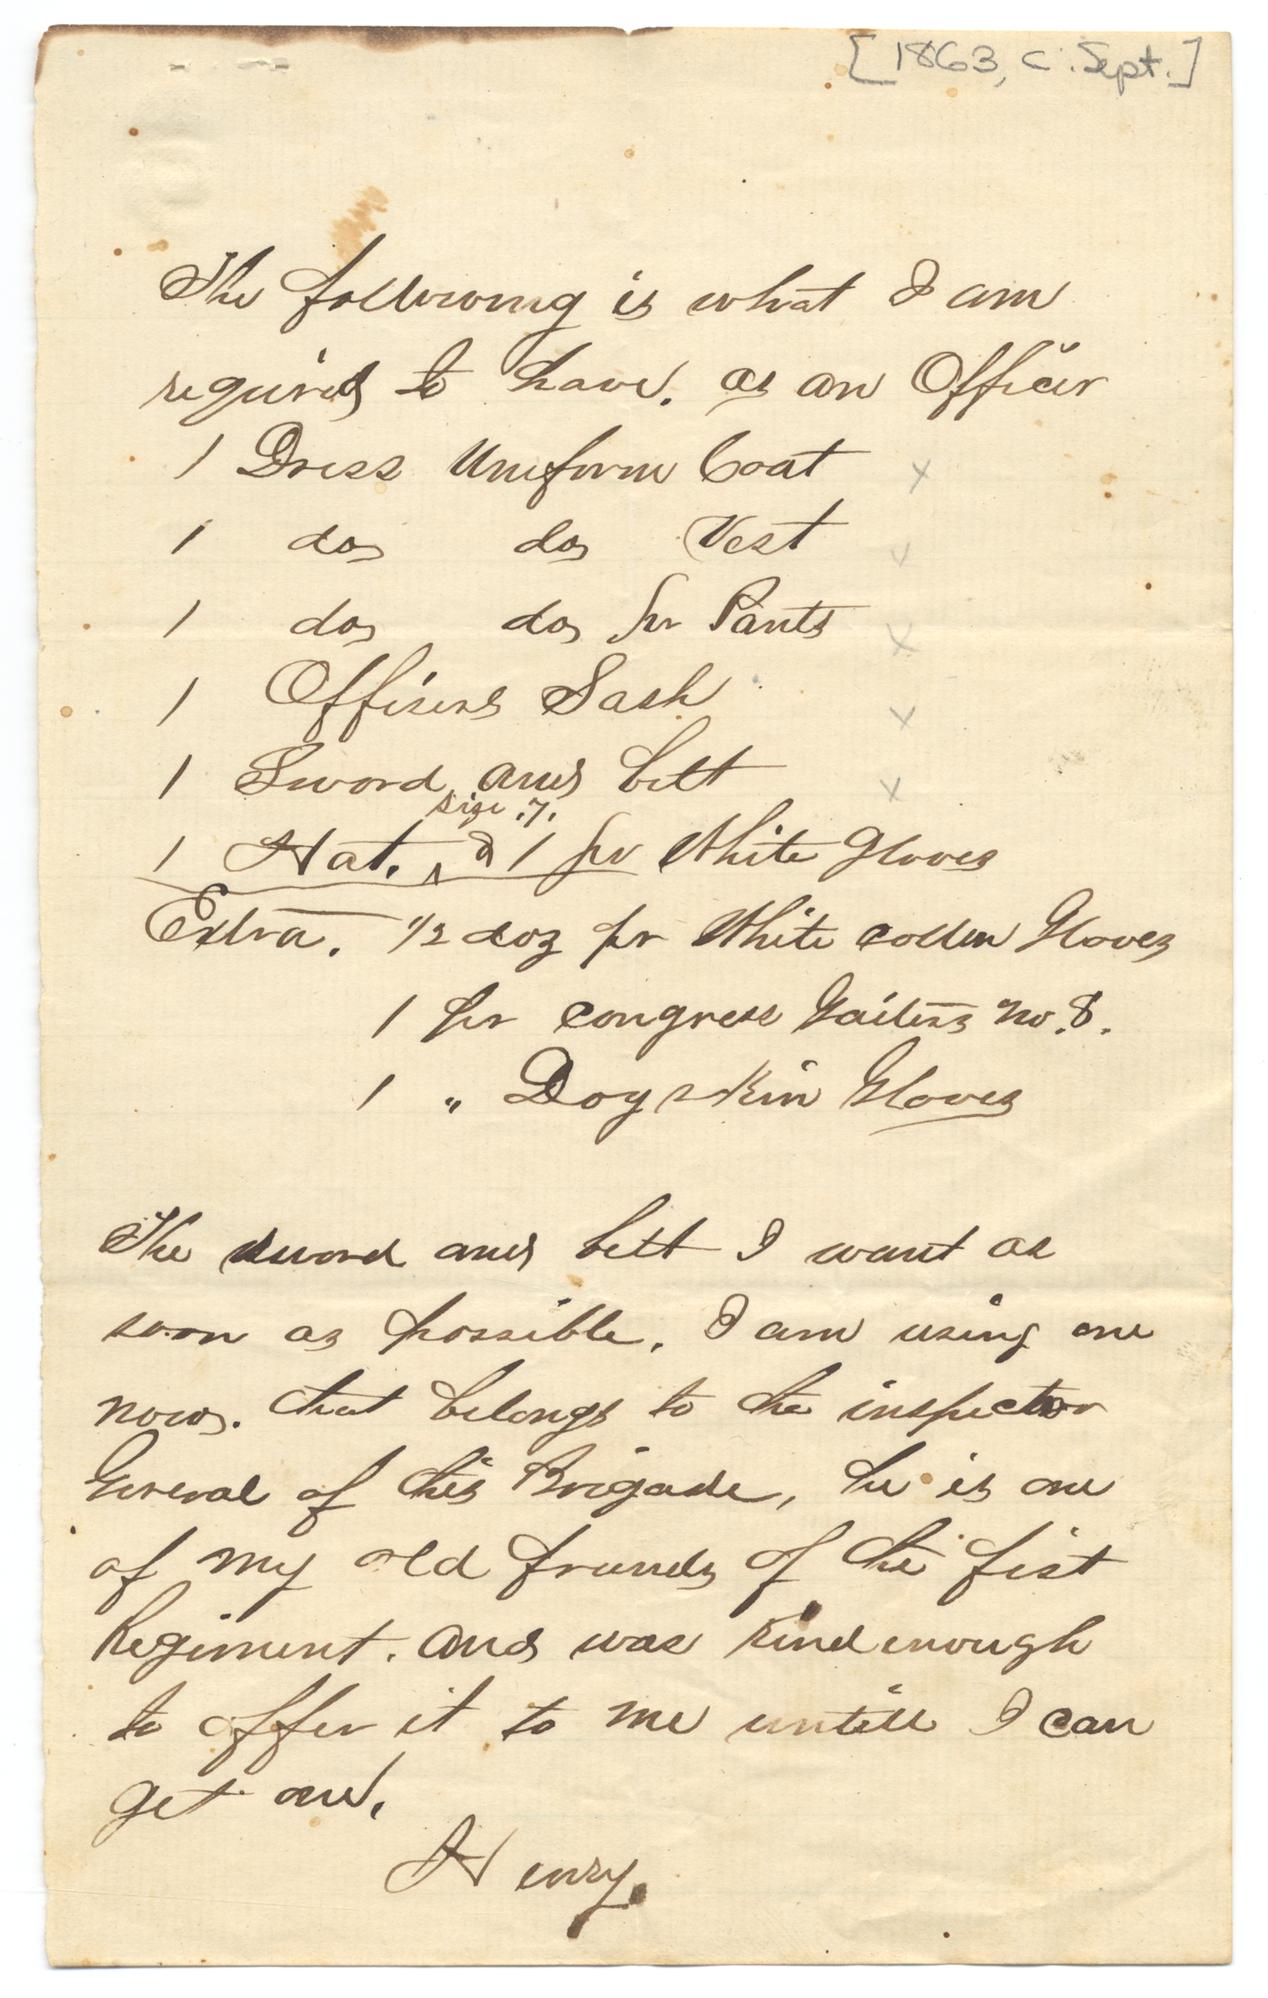 [1863, c. Sept.]
The following is what I am
required to have. as an Officer
1 Dress Uniform Coat x
1 do do Vest x
1 do do pr Pants x
1 Officers Sash x
1 Sword and belt x
size .7.
1 Hat. ^ & 1 pr White Gloves
Extra. 1/2 doz pr White cotten Gloves
1 pr congress Gaiters No. 8.
1 " Dog skin Gloves
The sword and belt I want as
soon as possible. I am using one
now. that belongs to the inspector
General of this Brigade, he is one
of my old friends of the fist
Regiment. and was kind enough
to offer it to me untill I can
get one.
Henry.